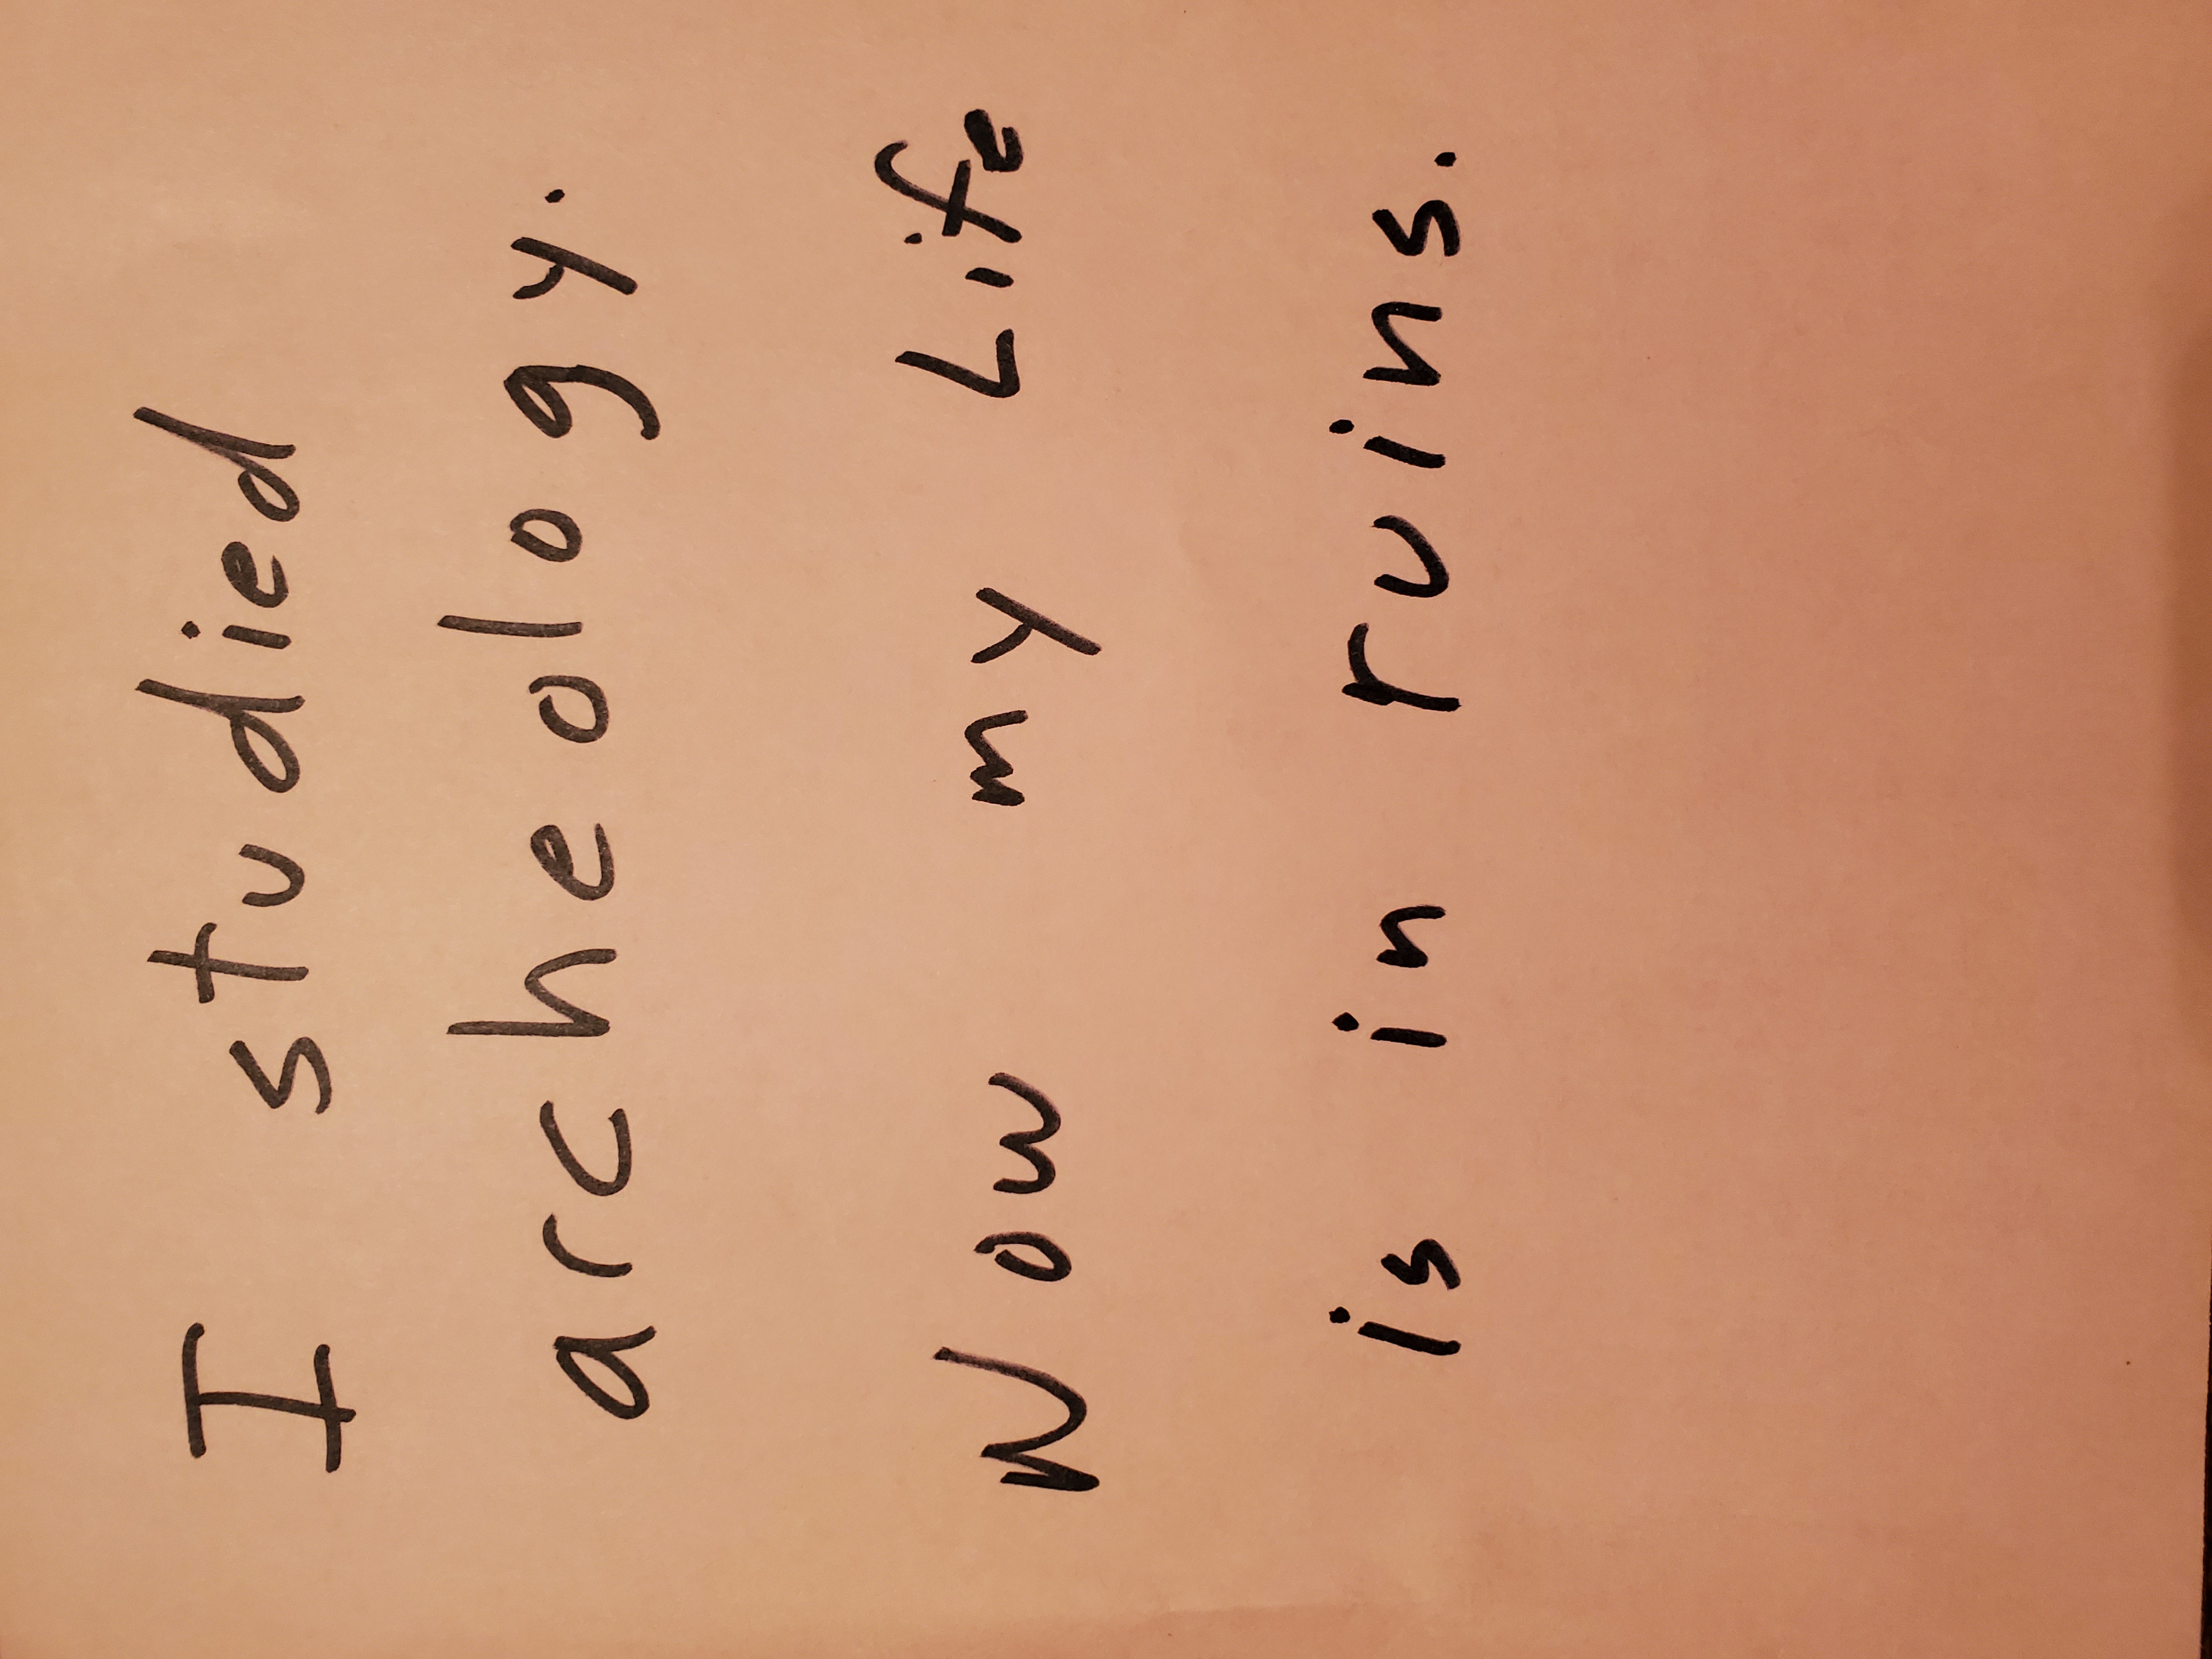 I studied
archeology.
Now my Life
is in ruins.